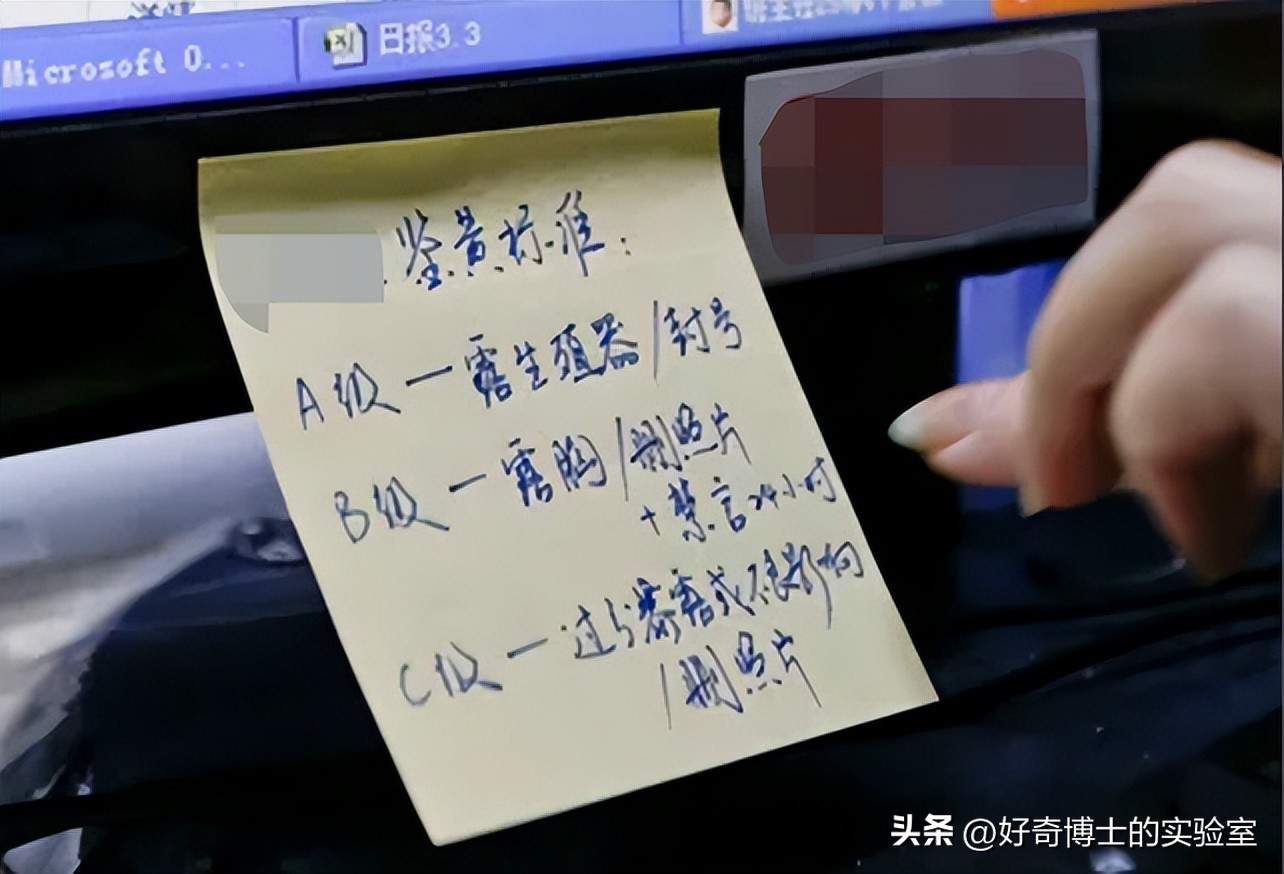 Microsoft O...
日报3.3
鉴黄标准:
A级一露生殖器/封号
B级一露胸/删照片
+禁言24小时
C级一过分暴露或不良影响
/删照片
头条 @好奇博士的实验室